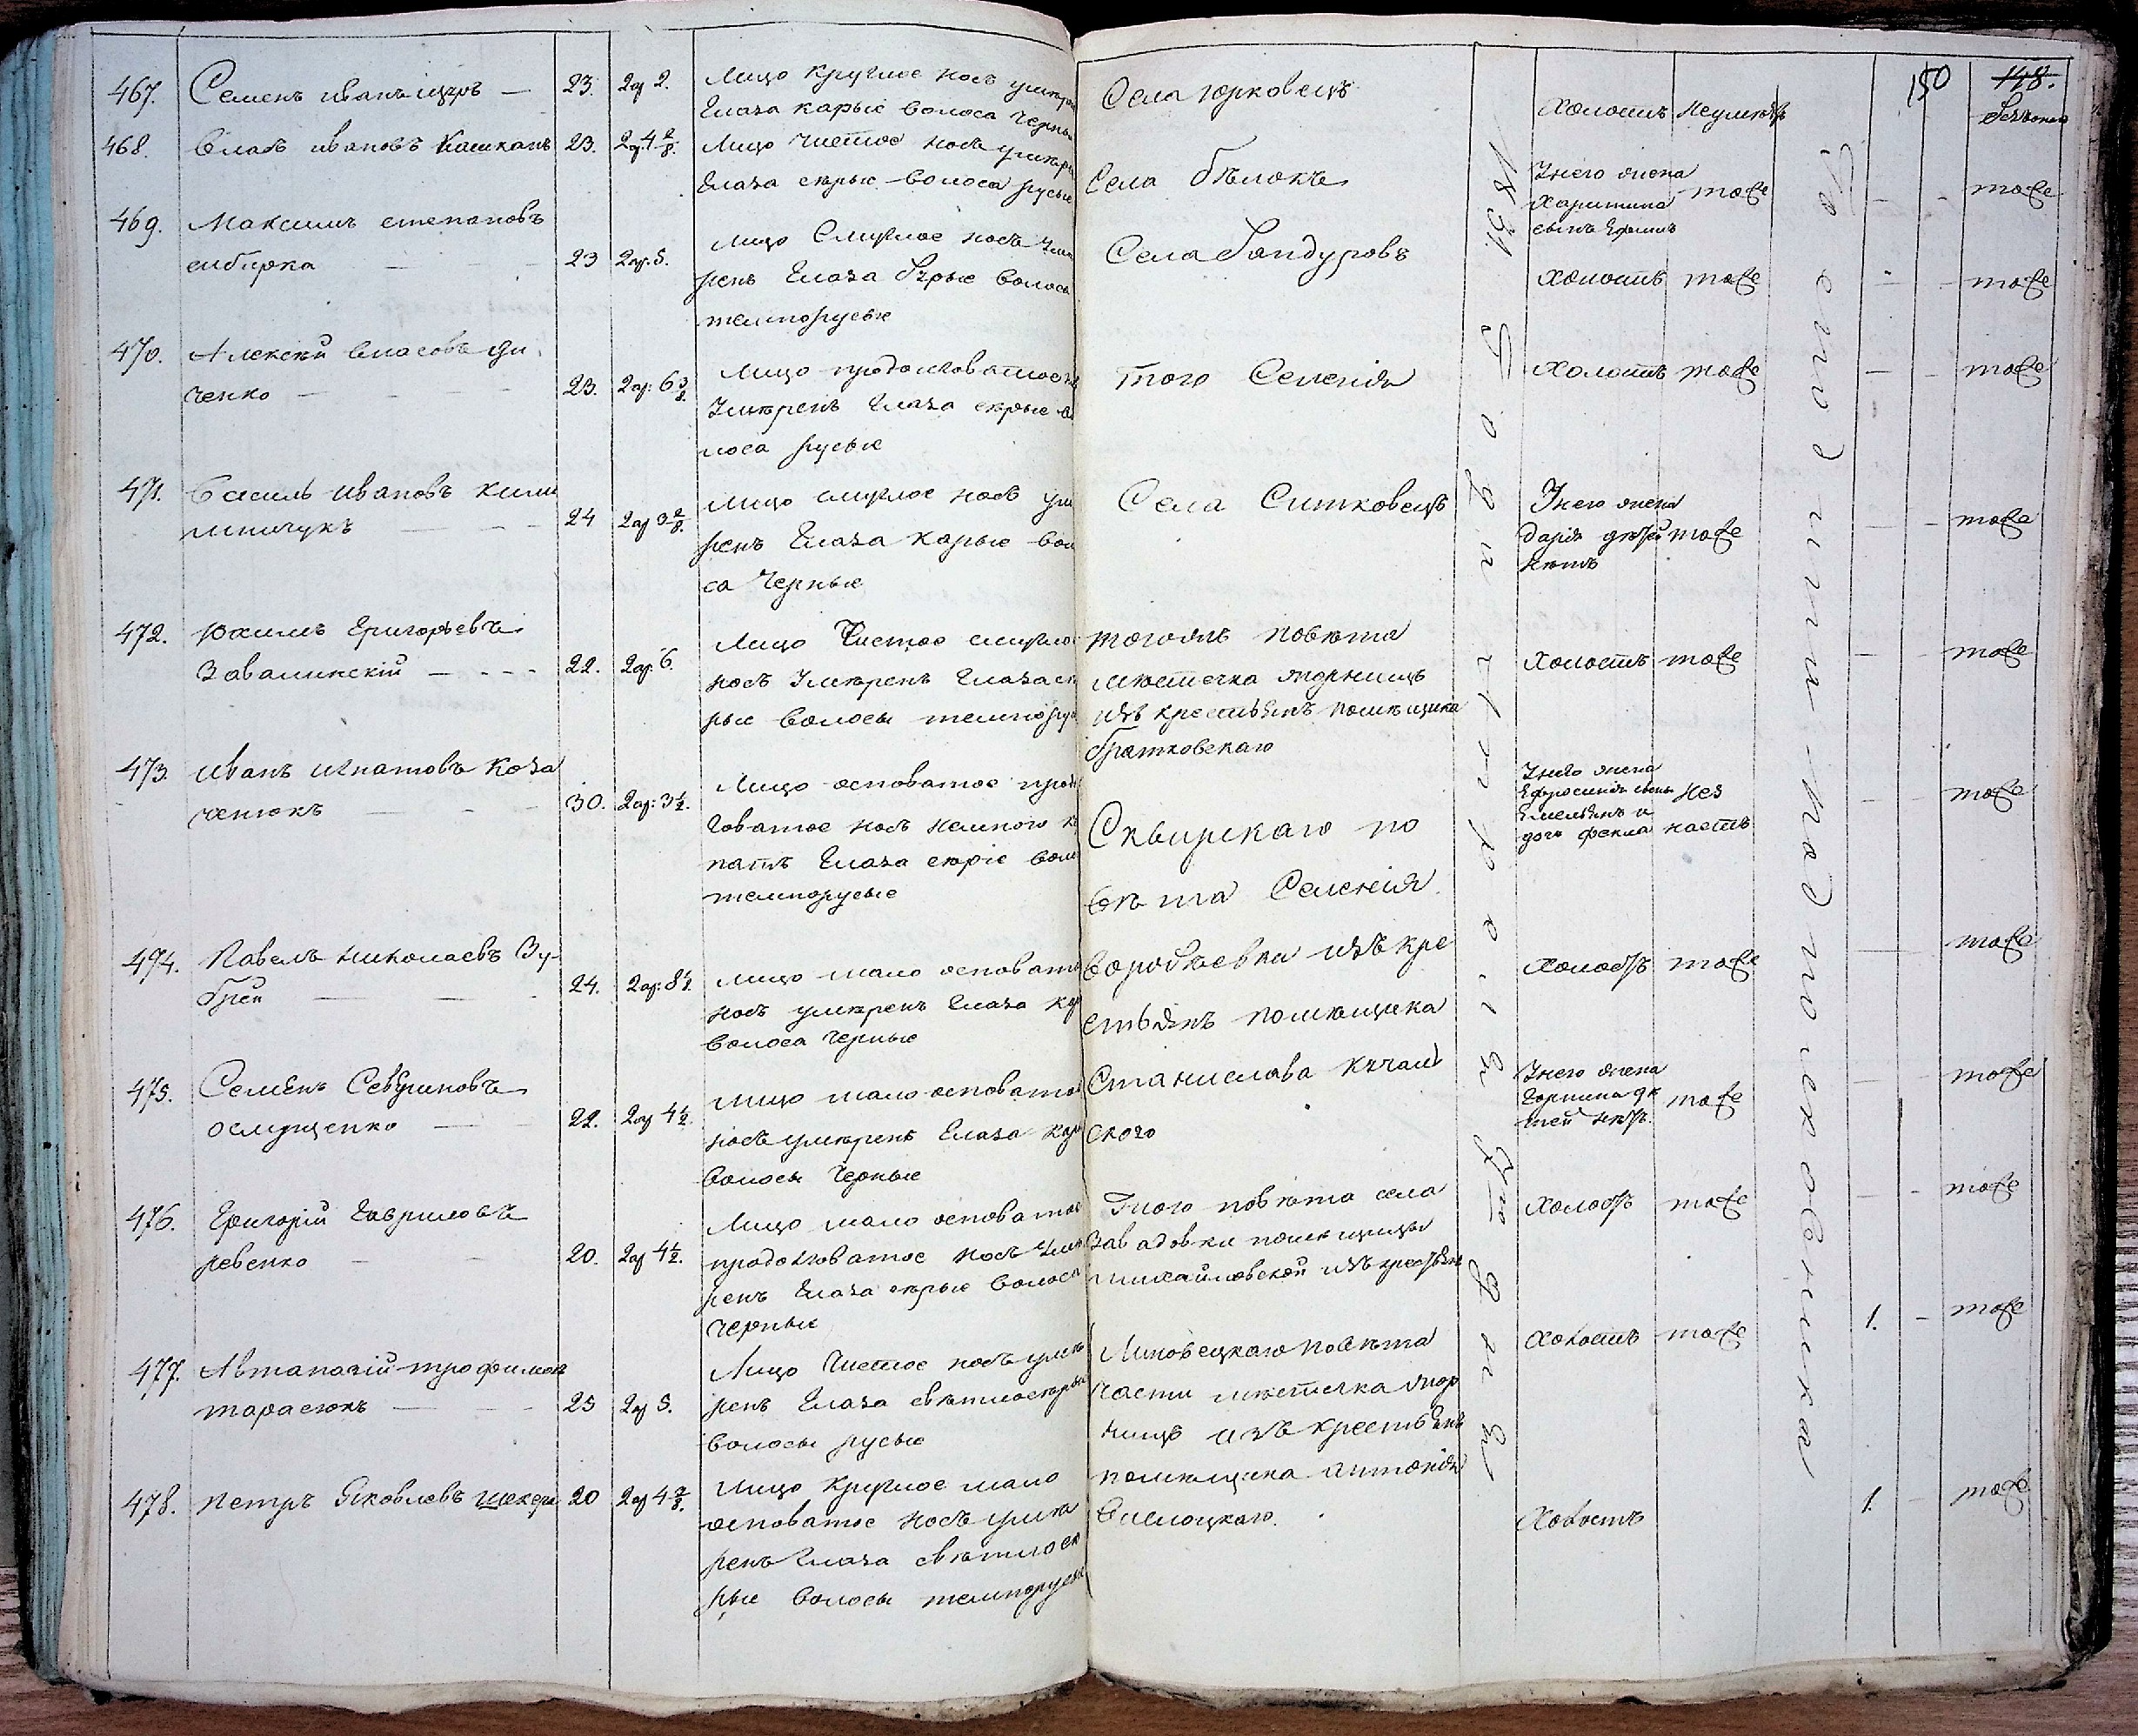 150
148.
467. Семенъ иванъ 23. 2 ар 2. Лицо круглое носъ умѣре
Глаза карые волоса черны
Села юрковецъ
Холостъ Неумѣетъ
468. Власъ ивановъ Кашканъ 23. 2 ар 4 2/8. Лицо чистое носъ умѣре
Глаза сѣрые волоса русые
Села бѣлокъ
Унего жена
Харитина тоже тоже
сынъ Ефимъ
469. Максимъ степановъ
сибирка 23 2 ар. 5. Лицо Смуглое носъ умѣ
ренъ Глаза Сѣрые волоса
темнорусые
Села Гандуровъ
Холостъ тоже тоже
470. Алексѣй власовъ ди
ченко 23. 2 ар: 6 3/8. Лицо продолговатое
Умѣренъ Глаза сѣрые во
лоса русые
того Селенія
Холостъ тоже тоже
471. Василь ивановъ клим
24 2 ар 3 2/8. Лицо смуглое носъ умѣ
ренъ Глаза карые воло
са черные
Села Ситковецъ
Унего жена
дарія дѣтей тоже тоже
нѣтъ
472. Якимъ Григорьевъ
Завалинскій 22. 2 ар. 6. Лицо Чистое смугло
носъ Умѣренъ Глаза сѣ
рые волосы темнорус
тогожъ повѣта
мѣстечка жорнищъ
изъ крестьянъ помѣщика
братковскаго
Холостъ тоже тоже
473. иванъ игнатовъ коза
ченюкъ 30. 2 ар: 3 1/2. Лицо осповатое продол
говатое носъ немного к
патъ Глаза сѣріе воло
темнорусые
Сквирскаго по
вѣта Селенія
Унего жена
Ефросинія сынъ Нез
Емельянъ и
дочь фекла наетъ тоже
474. Павелъ николаевъ Зу-
брей 24. 2 ар: 8 1/2. Лицо мало осповато
носъ умѣренъ Глаза кар
волоса черные
воробѣевки изъ кре
стьянъ помѣщика
Холостъ тоже тоже
475. Семенъ Севериновъ
осмущенко 22. 2 ар 4 1/2. Лицо мало осповато
носъ умѣренъ Глаза кар
волосы черные
Станислава
ского
Унего жена
Горпина дѣ
тей нѣтъ. тоже тоже
476. Григорій Гавриловъ
левенко 20. 2 ар 4 1/2. Лицо мало осповатое
продолговатое носъ умѣ
ренъ Глаза сѣрые волоса
черные
Того повѣта села
Завадовки помѣщицы
михайловской изъ крестьянъ
Холостъ тоже тоже
477. Автаназій трофимов
тарасюкъ 25 2 ар 5. Лицо Чистое носъ умѣ
ренъ Глаза свѣтлосѣрые
волосы русые
Липовецкаго повѣта
части мѣстечка жор
нищъ изъ крестьянъ
помѣщика антонія
Холостъ тоже 1. тоже
478. петръ Яковлевъ шкера 20 2 ар 4 2/8. Лицо Круглое мало
осповатое носъ умѣ
ренъ Глаза свѣтлосѣ
рые волосы темнорусые
Холостъ 1. тоже
1831